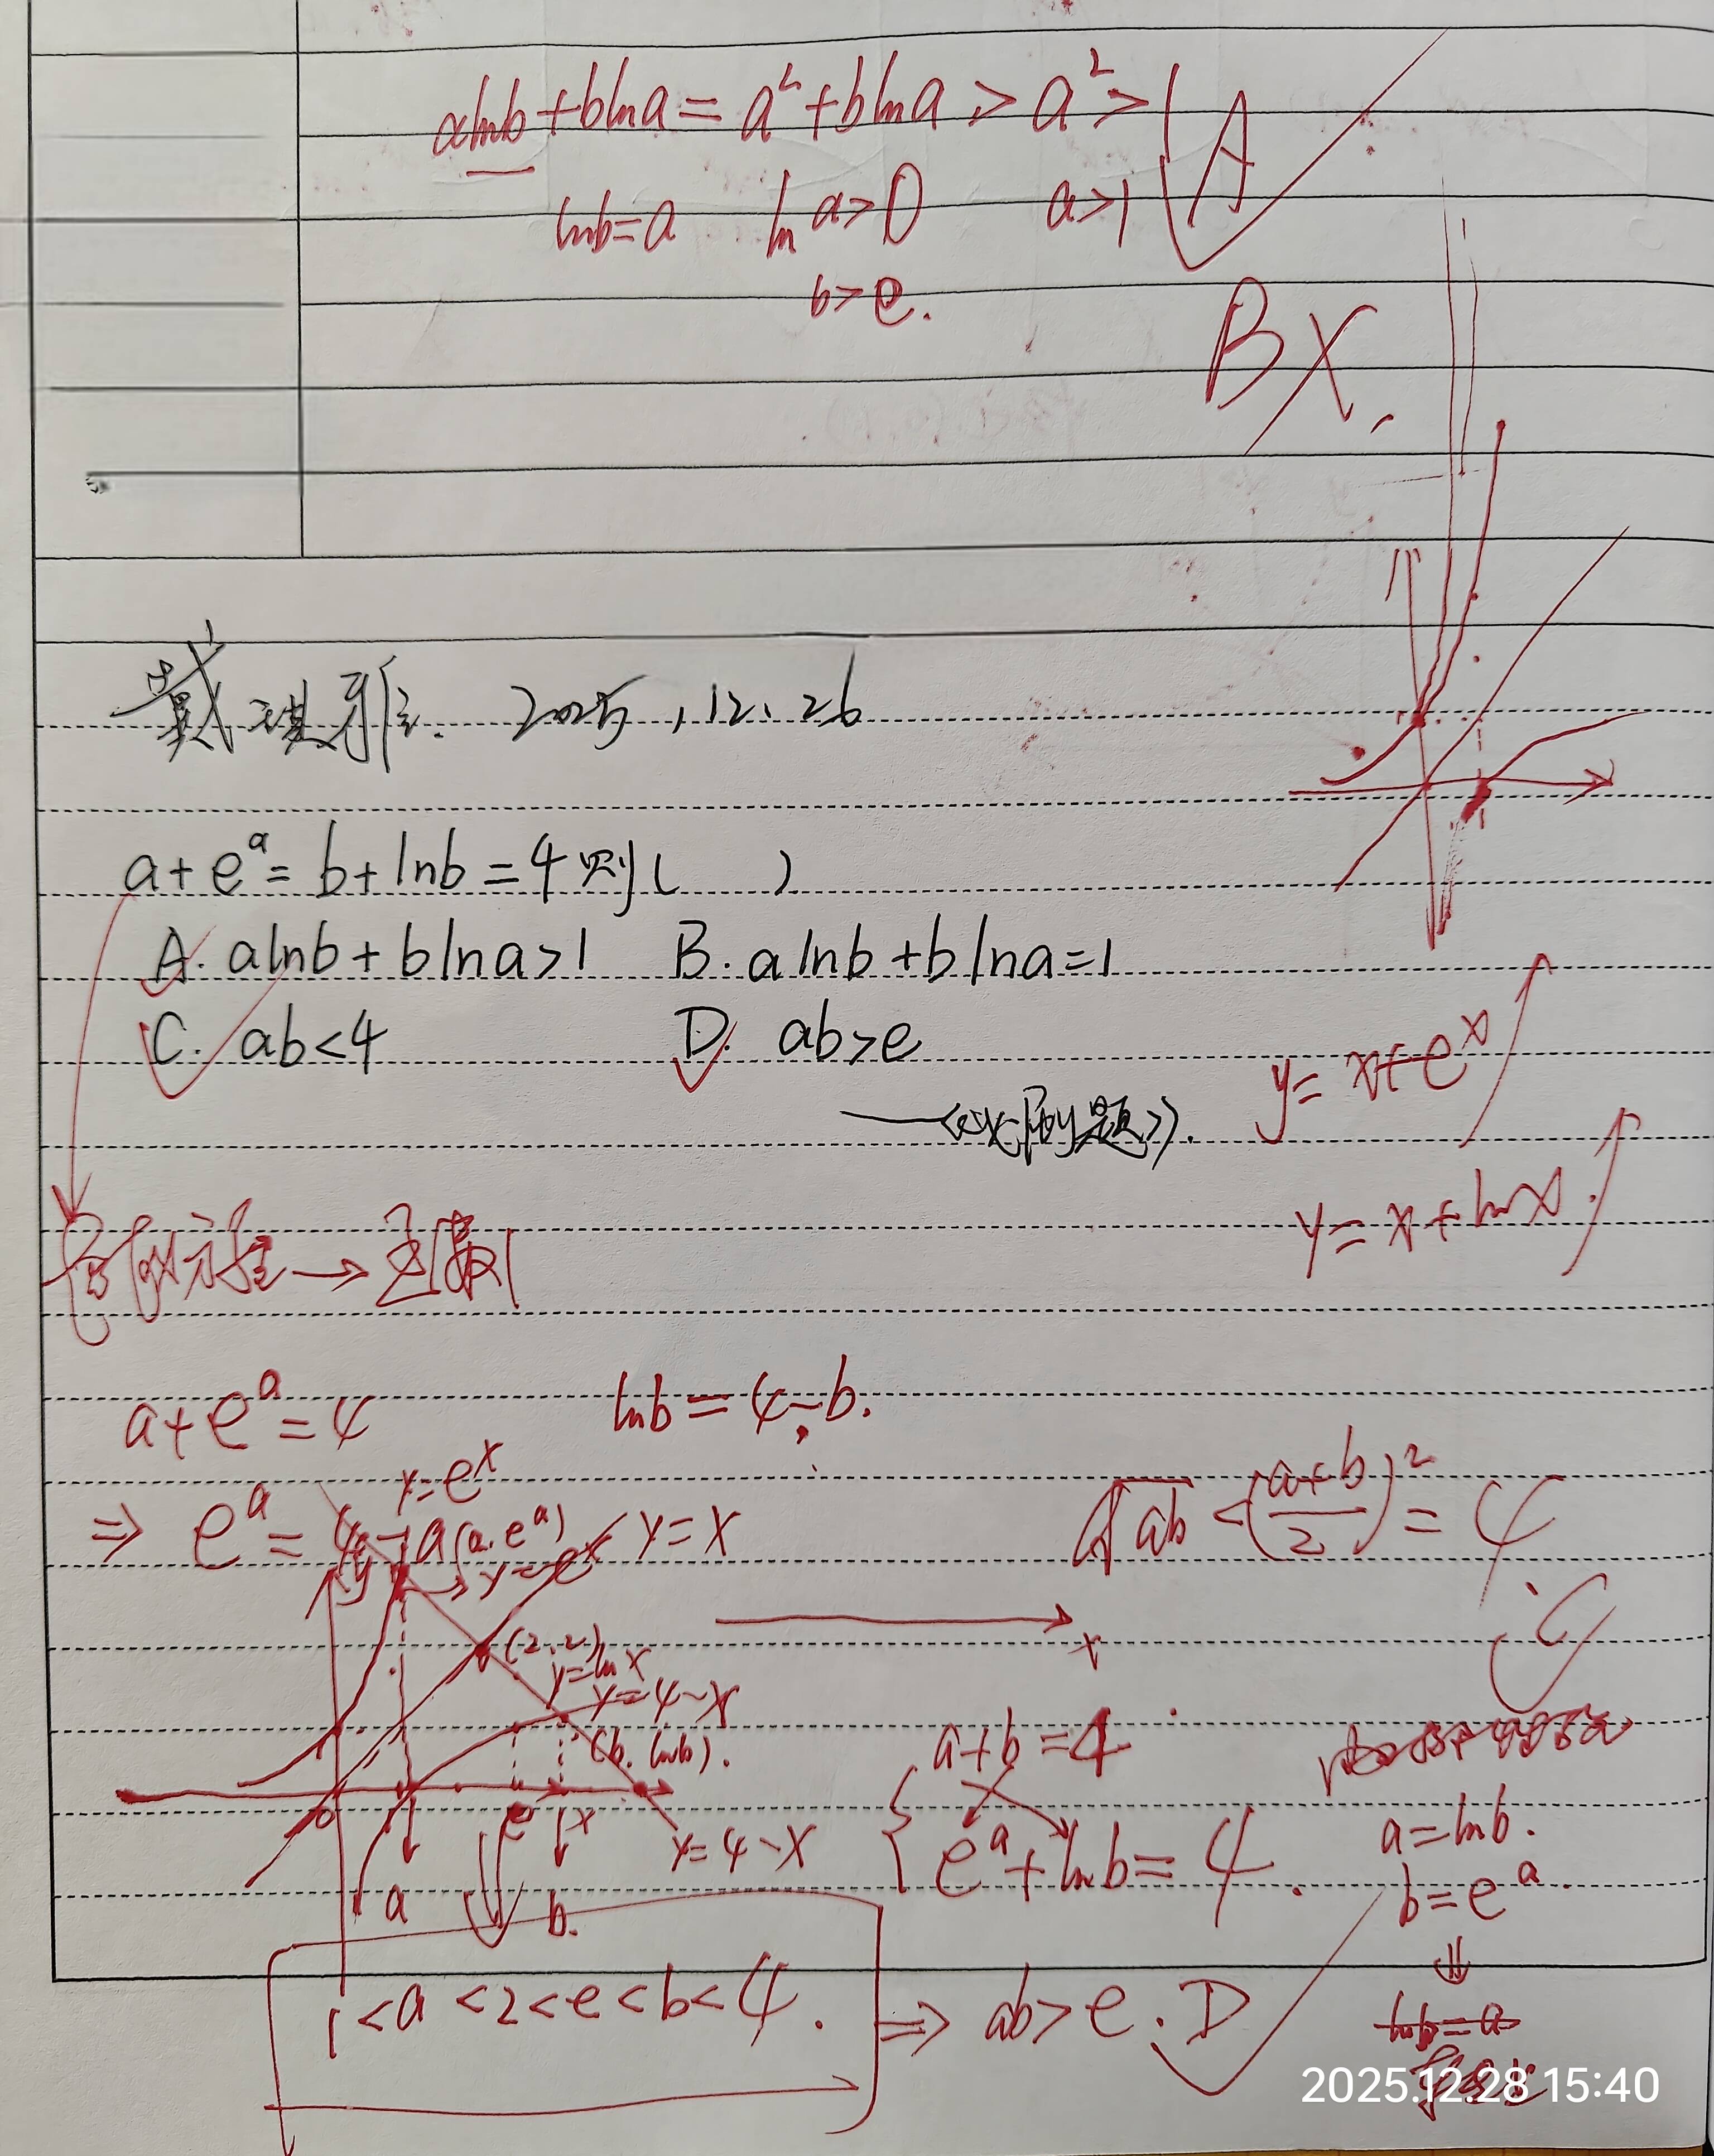 alnb+blna=a²+blna>a²>1 A
lnb=a lna>0 a>1
b>e.
B×.
2025,12、26
a+eᵃ=b+lnb=4则( )
A. alnb+blna>1 B. alnb+blna=1
C. ab<4 D. ab>e
刷题》.
y=x+eˣ
y=x+lnx.
方程→
a+eᵃ=4 lnb=4-b.
⇒ eᵃ=4-a
y=eˣ
(a.eᵃ)
y=eˣ
y=x
y
(2.2)
y=lnx
y=4-x
(b.lnb).
0 e x
y=4-x
a b.
ab<((a+b)/2)²=4
C
x
a+b=4
eᵃ+lnb=4.
a=lnb.
b=eᵃ.
⇓
lnb=a
1<a<2<e<b<4. ⇒ ab>e. D
2025.12.28 15:40